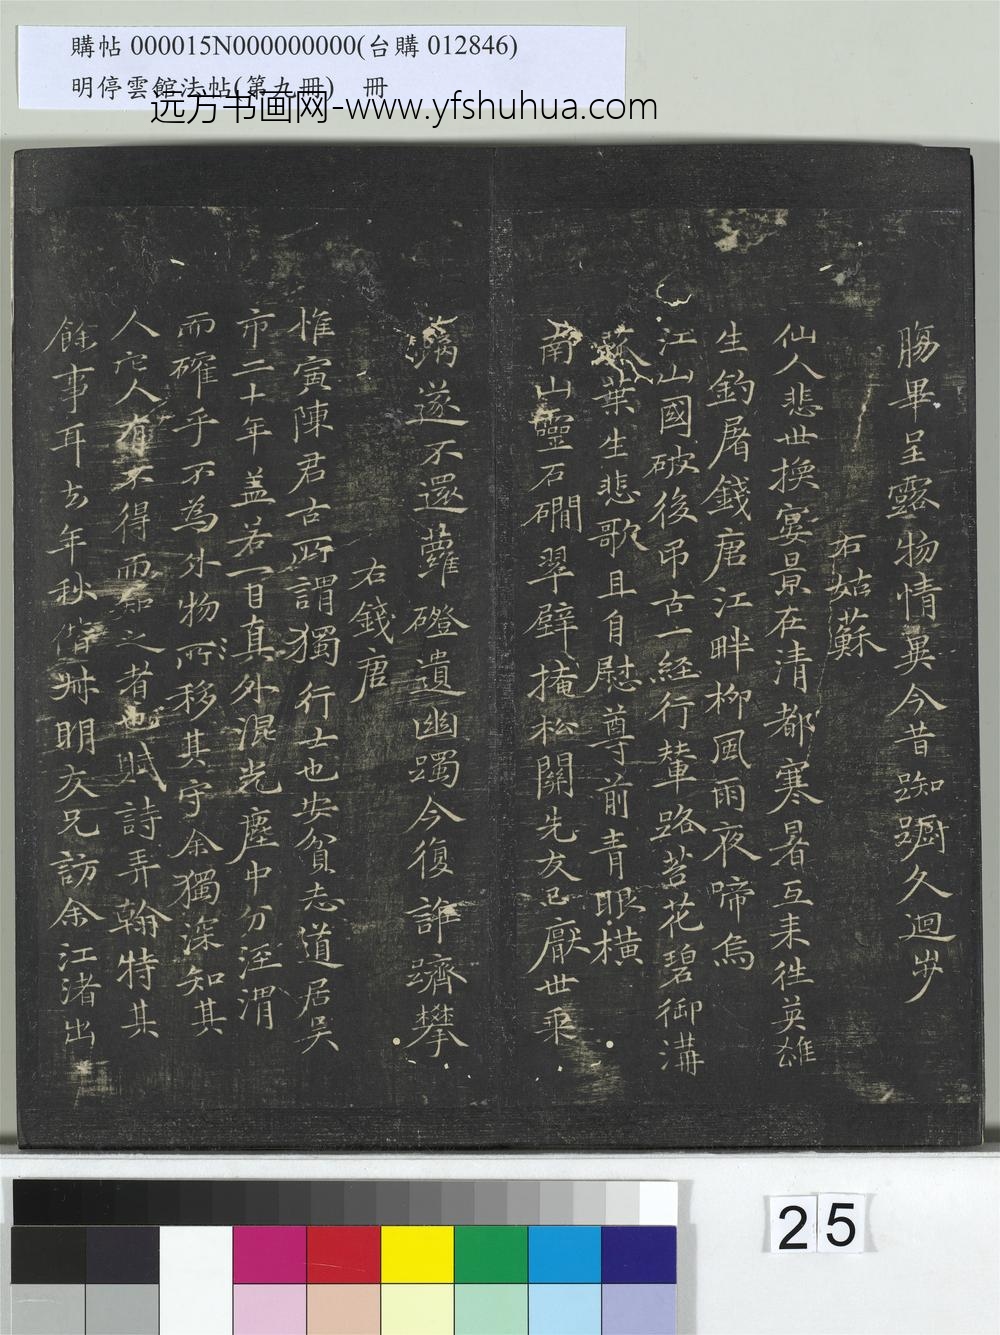 購帖 000015N000000000(台購 012846)
明停雲館法帖(第九冊) 冊
远方书画网-www.yfshuhua.com
觴畢呈露物情異今昔踟躕久迴步
右姑蘇
仙人悲世換宴景在清都寒暑互来徃英雄
生釣屠錢唐江畔柳風雨夜啼烏
江山國破後吊古一經行輦路苔花碧御溝
葉生悲歌且自慰尊前青眼横
南山靈石磵翠壁掩松關先友已厭世乘
鸞遂不還蘿磴遺幽躅今復誰躋攀
右錢唐
惟寅陳君古所謂獨行士也安貧志道居吴
市二十年盖若一日真外混光塵中分涇渭
而確乎不為外物所移其守余獨深知其
人它人有不得而知之者也賦詩弄翰特其
餘事耳去年秋偕叔明友兄訪余江渚出
25